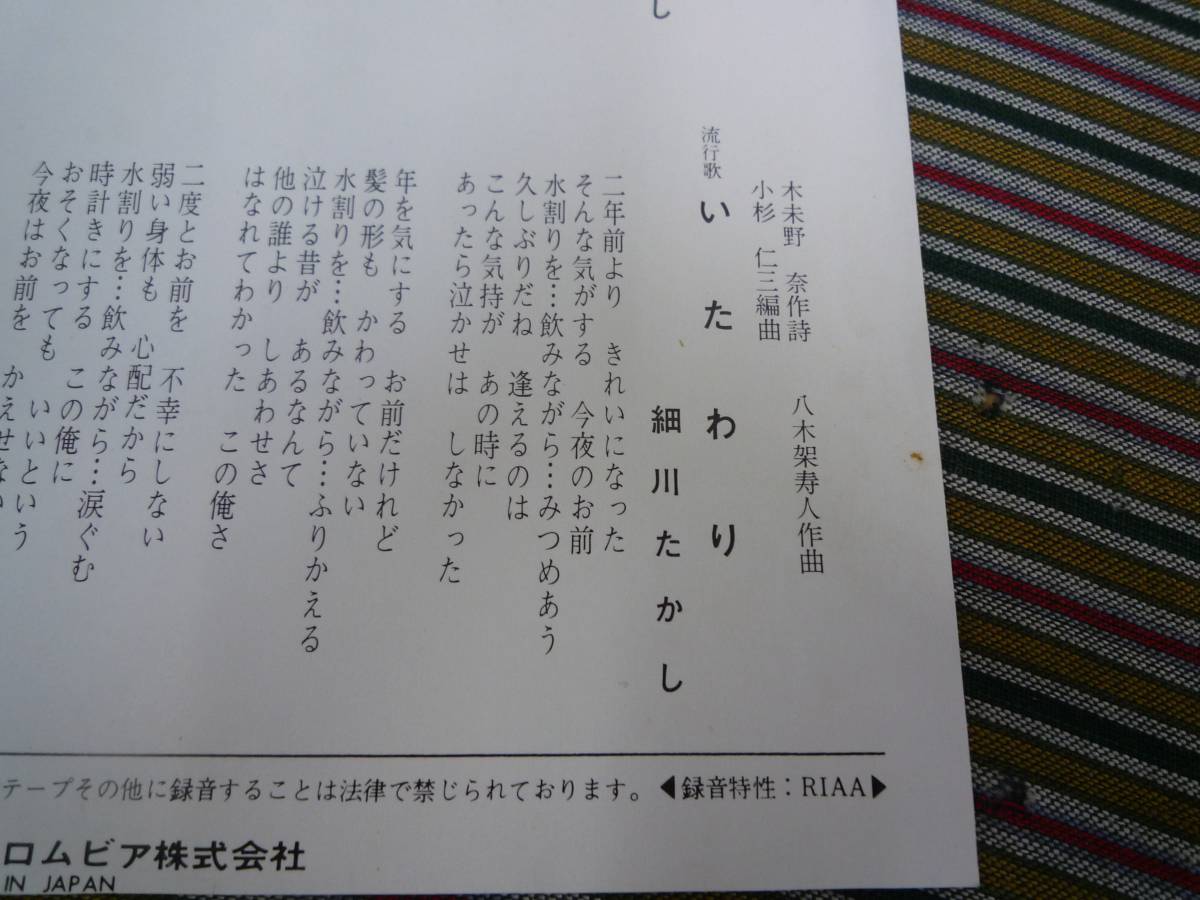 し
木未野 奈作詩
八木架寿人作曲
小杉 仁三編曲
流行歌 いたわり
細川たかし
二年前より きれいになった
そんな気がする 今夜のお前
水割りを…飲みながら…みつめあう
久しぶりだね 逢えるのは
こんな気持が あの時に
あったら泣かせは しなかった
年を気にする お前だけれど
髪の形も かわっていない
水割りを…飲みながら…ふりかえる
泣ける昔が あるなんて
他の誰より しあわせさ
はなれてわかった この俺さ
二度とお前を 不幸にしない
弱い身体も 心配だから
水割りを…飲みながら…涙ぐむ
時計きにする この俺に
おそくなっても いいという
今夜はお前を かえせない
テープその他に録音することは法律で禁じられております。 ◀録音特性:RIAA▶
ロムビア株式会社
IN JAPAN